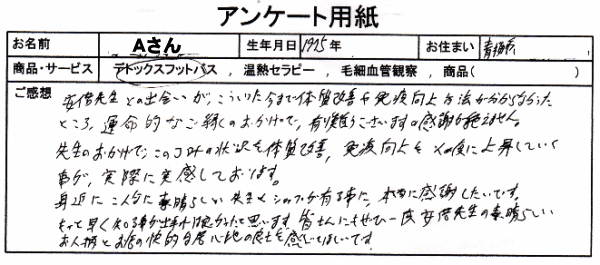 アンケート用紙
お名前 Aさん 生年月日 1975年 お住まい 青梅市
商品・サービス デトックスフットバス , 温熱セラピー , 毛細血管観察 , 商品( )
ご感想
安倍先生との出会いが、こういった今まで体質改善や免疫向上方法が分からなかった
ところ、運命的なご縁のおかげで、有り難うございます。感謝が絶えません。
先生のおかげで、このコロナの状況を体質改善、免疫向上を 上昇していく
事が、実際に実感しております。
身近にこんなに素晴らしい先生とショップが有る事に、本当に感謝したいです。
もっと早く知る事が出来れば良かったと思います。皆さんにもぜひ一度安倍先生の素晴らしい
お人柄とお店の快的な居心地の良さを感じてほしいです。